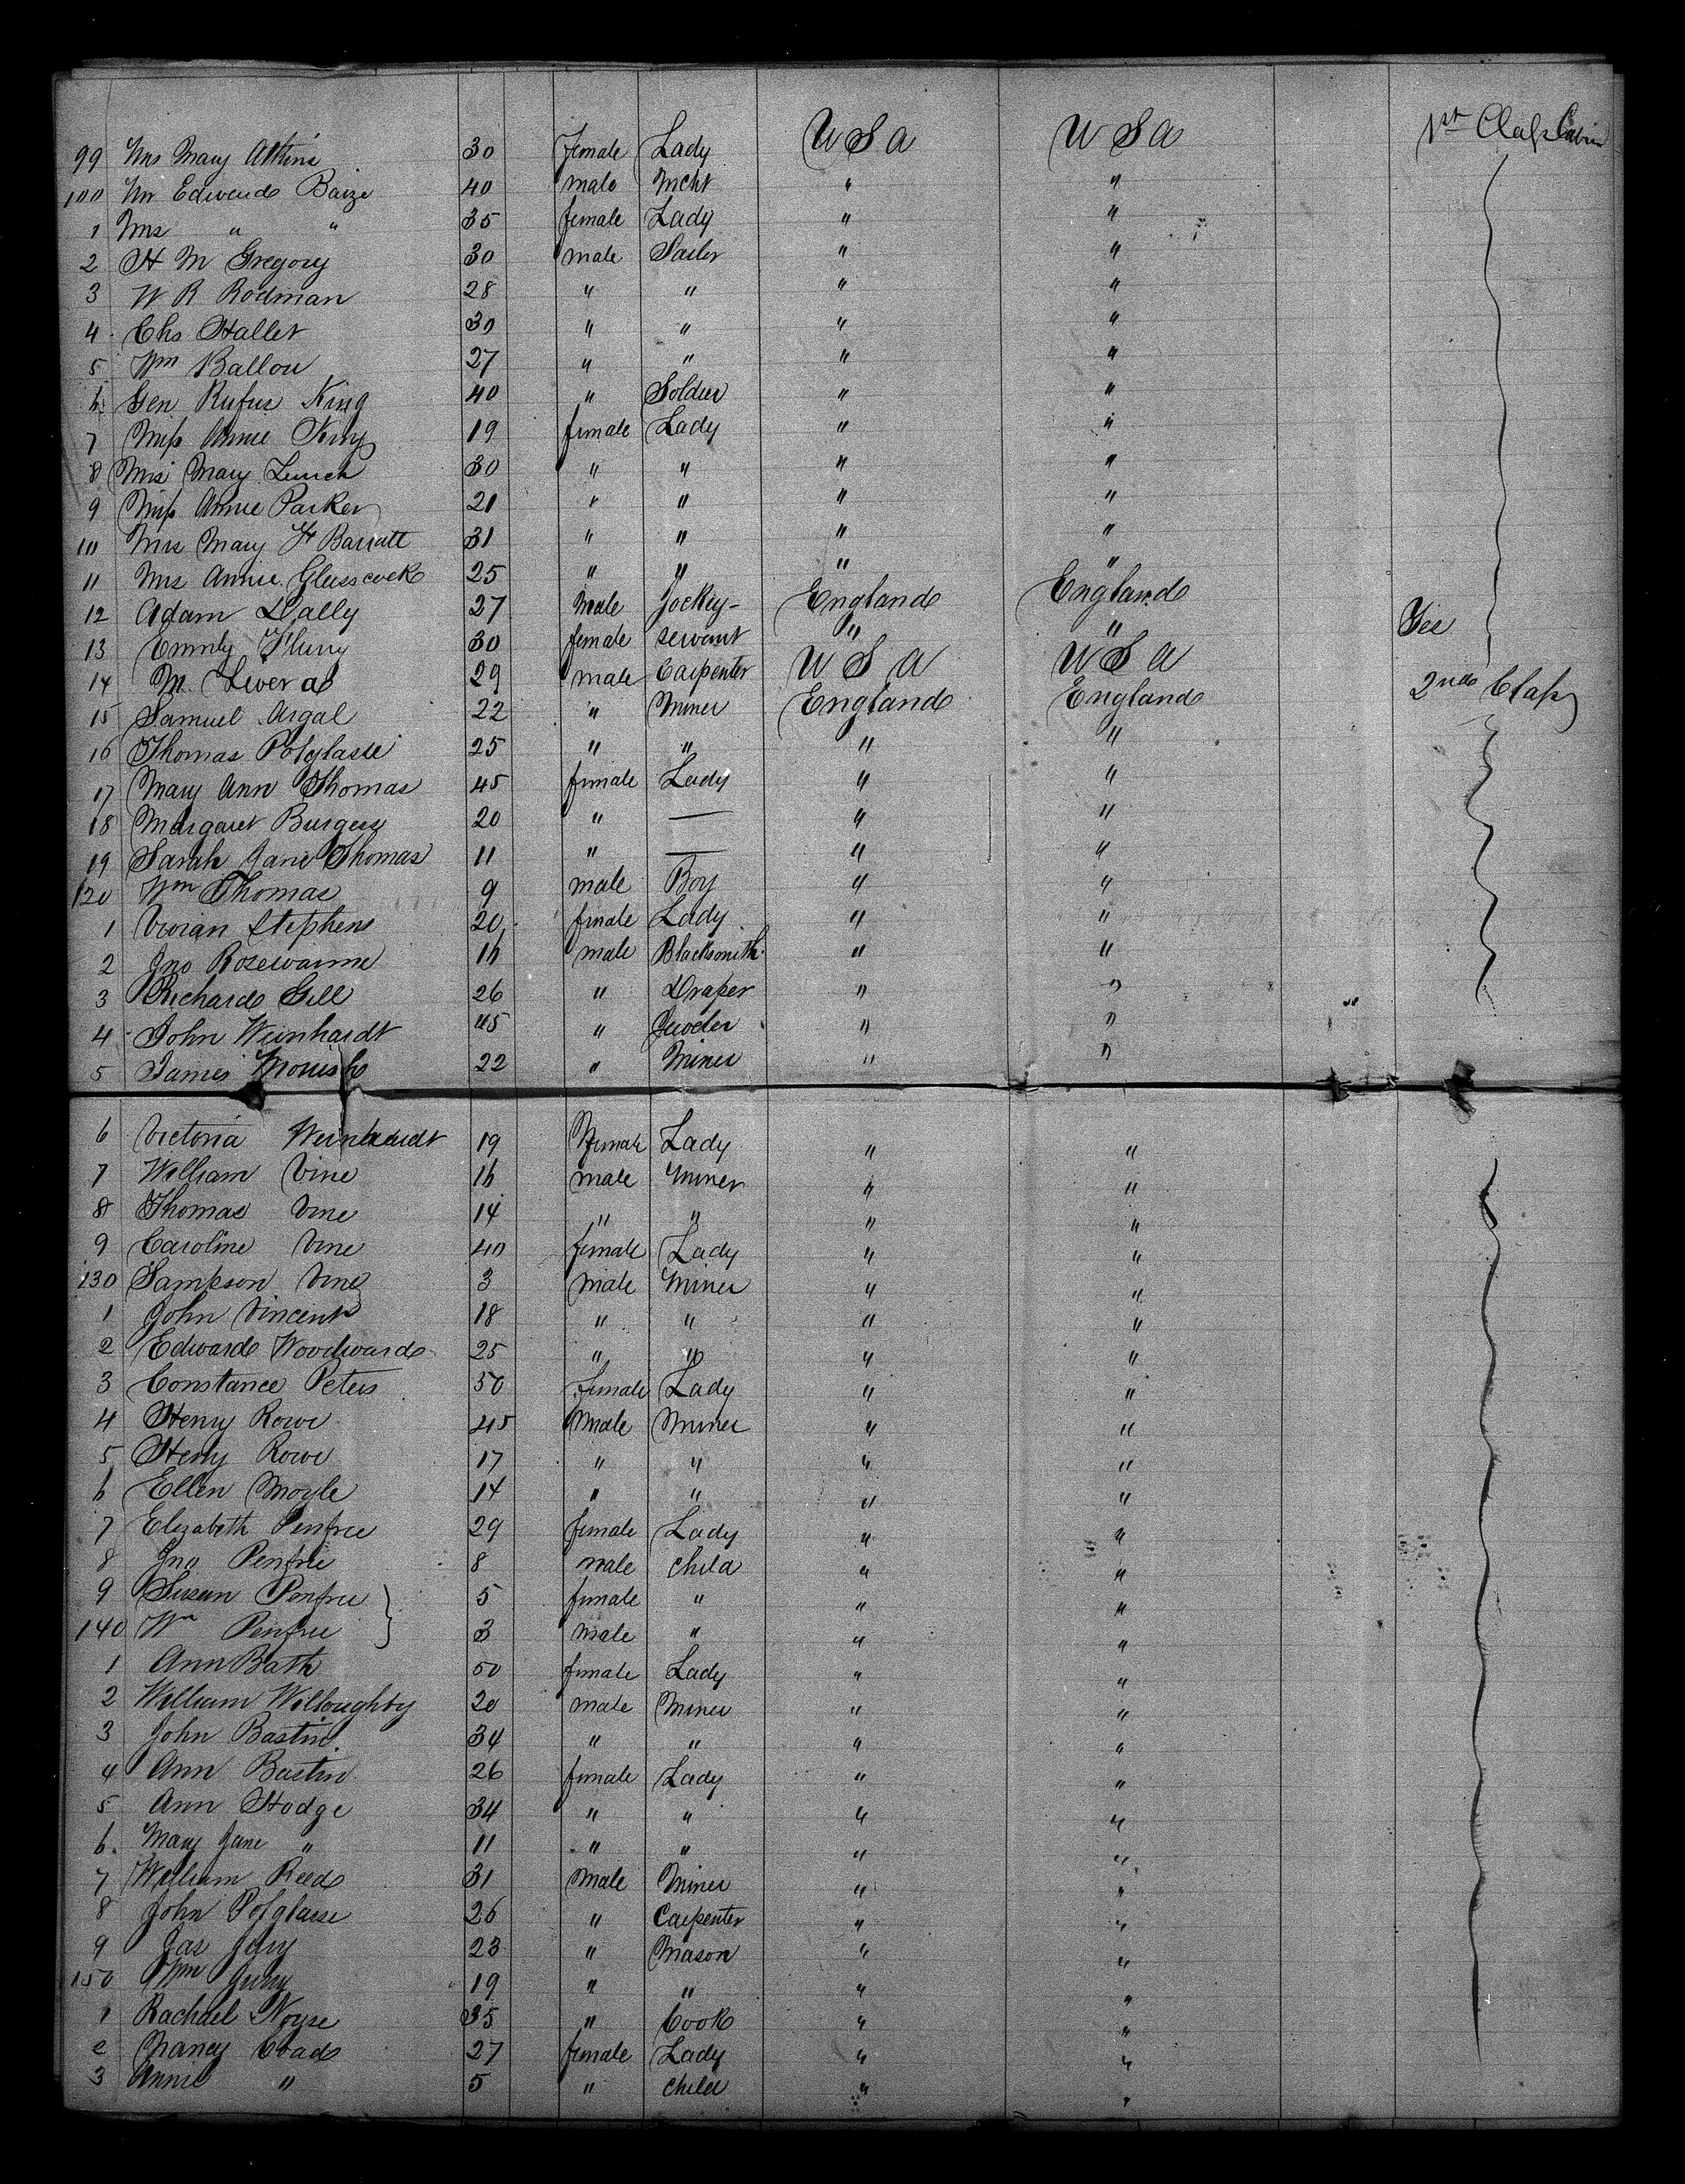 99 Mrs Mary Atkins 30 female Lady U S A U S A 1st Class Cabin
100 Mr Edward Baize 40 male Mcht " "
1 Mrs " " 35 female Lady " "
2 H M Gregory 30 male Sailor " "
3 W R Rodman 28 " " " "
4 Chs Hallet 30 " " " "
5 Wm Ballou 27 " " " "
6 Gen Rufus King 40 " Soldier " "
7 Miss Annie 19 female Lady " "
8 Mrs Mary 30 " " " "
9 Miss Annie Parker 21 " " " "
10 Mrs Mary H Barratt 31 " " " "
11 Mrs Annie Glasscock 25 " " " "
12 Adam Dally 27 Male Jockey England England
13 30 female servant " "
14 M. 29 male Carpenter U S A U S A 2nd Class
15 Samuel Argal 22 " Miner England England
16 Thomas Polglase 25 " " " "
17 Mary Ann Thomas 45 female Lady " "
18 Margaret Burgess 20 " — " "
19 Sarah Jane Thomas 11 " — " "
120 Wm Thomas 9 male Boy " "
1 Vivian Stephens 20 female Lady " "
2 Jno Rosewarne 16 male Blacksmith " "
3 Richard Gill 26 " Draper " "
4 John Weinhardt 45 " " "
5 James Morrish 22 " Miner " "
6 Victoria Weinhardt 19 female Lady " "
7 William Vine 16 male Miner " "
8 Thomas Vine 14 " " " "
9 Caroline Vine 40 female Lady " "
130 Sampson Vine 3 male Miner " "
1 John Vincent 18 " " " "
2 Edward Woodward 25 " " " "
3 Constance Peters 50 female Lady " "
4 Henry Rowe 45 Male Miner " "
5 Henry Rowe 17 " " " "
6 Ellen Moyle 14 " " " "
7 Elizabeth Penfree 29 female Lady " "
8 Jno Penfree 8 male child " "
9 Susan Penfree 5 female " " "
140 Wm Penfree 3 male " " "
1 Ann Bath 50 female Lady " "
2 William Willoughby 20 male Miner " "
3 John Bastin 34 " " " "
4 Ann Bastin 26 female Lady " "
5 Ann Hodge 34 " " " "
6 Mary Jane " 11 " " " "
7 William Reed 31 Male Miner " "
8 John Polglase 26 " Carpenter " "
9 Jas Jury 23 " Mason " "
150 Wm Jury 19 " " " "
1 Rachael Noyse 35 " Cook " "
2 Nancy Coad 27 female Lady " "
3 Annie " 5 " child " "